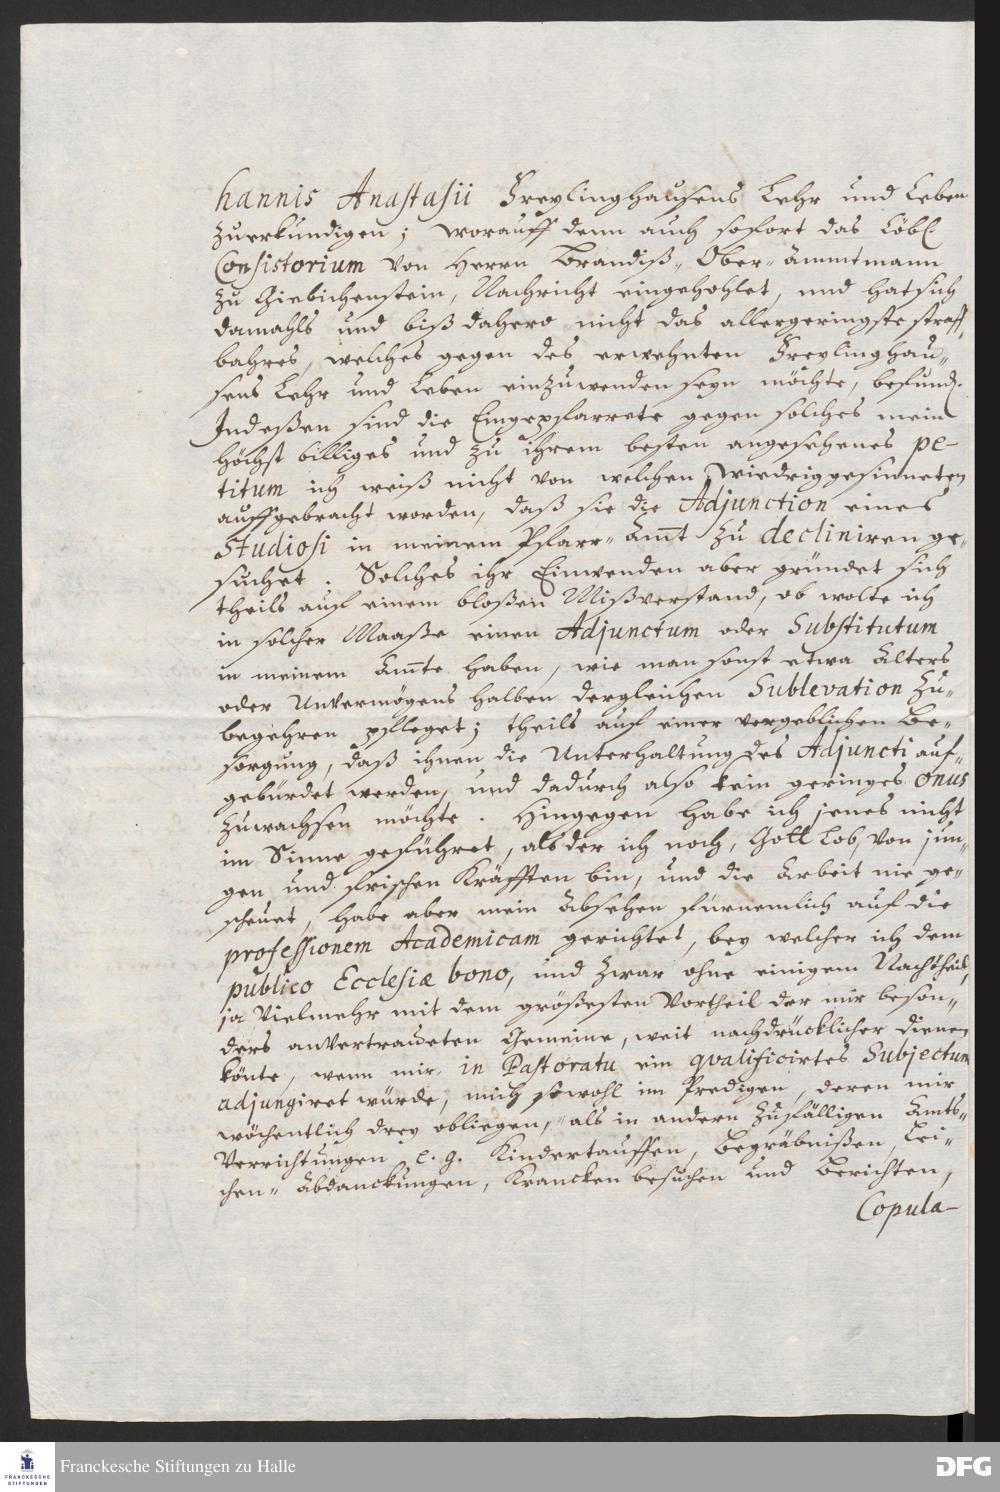 hannis Anastasii Freylinghausens Lehr und Leben
zuerkundigen; worauff denn auch sofort das Löbl
Consistorium von Herrn Brandiß, Ober-Ammtmann
zu Giebichenstein, Nachricht eingehohlet, und hat sich
damahls und biß dahero nicht das allergeringste straff-
bahres, welches gegen des erwehnten Freylinghau-
sens Lehr und Leben einzuwenden seyn möchte, befund.
Indeßen sind die Eingepfarrete gegen solches mein
höchst billiges und zu ihrem besten angesehenes pe-
titum ich weiß nicht von welchen wiedriggesinneten
auffgebracht worden, daß sie die Adjunction eines
Studiosi in meinem Pfarr-Amt zu decliniren ge-
suchet. Solches ihr Einwenden aber gründet sich
theils auf einem bloßen Mißverstand, ob wolte ich
in solcher Maaße einen Adjunctum oder Substitutum
in meinem Amte haben, wie man sonst etwa Alters
oder Unvermögens halben dergleichen Sublevation zu-
begehren pfleget; theils auf einer vergeblichen Be-
sorgung, daß ihnen die Unterhaltung des Adjuncti auf-
gebürdet werden, und dadurch also kein geringes onus
zuwachsen möchte. Hingegen habe ich jenes nicht
im Sinne geführet, als der ich noch, Gott Lob, von jun-
gen und frischen Kräfften bin, und die Arbeit nie ge-
scheuet, habe aber mein Absehen fürnemlich auf die
professionem Academicam gerichtet, bey welcher ich dem
publico Ecclesiæ bono, und zwar ohne einigem Nachtheil,
ja vielmehr mit dem größesten Vortheil der mir beson-
ders anvertraueten Gemeine, weit nachdrücklicher dienen
könte, wenn mir in Pastoratu ein qvalificirtes Subjectum
adjungiret würde, mich sowohl im Predigen, deren mir
wöchentlich drey obliegen, als in andern zufälligen Amts-
Verrichtungen e. g. Kindertauffen, Begräbnißen, Lei-
chen-Abdanckungen, Krancken besuchen und berichten,
Copula-
Franckesche Stiftungen zu Halle
FRANCKESCHE
STIFTUNGEN
DFG